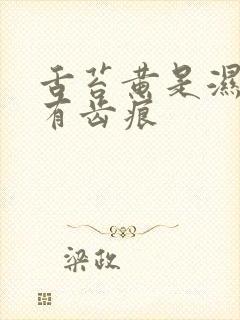 舌苔黄是濕
有齿痕
梁政